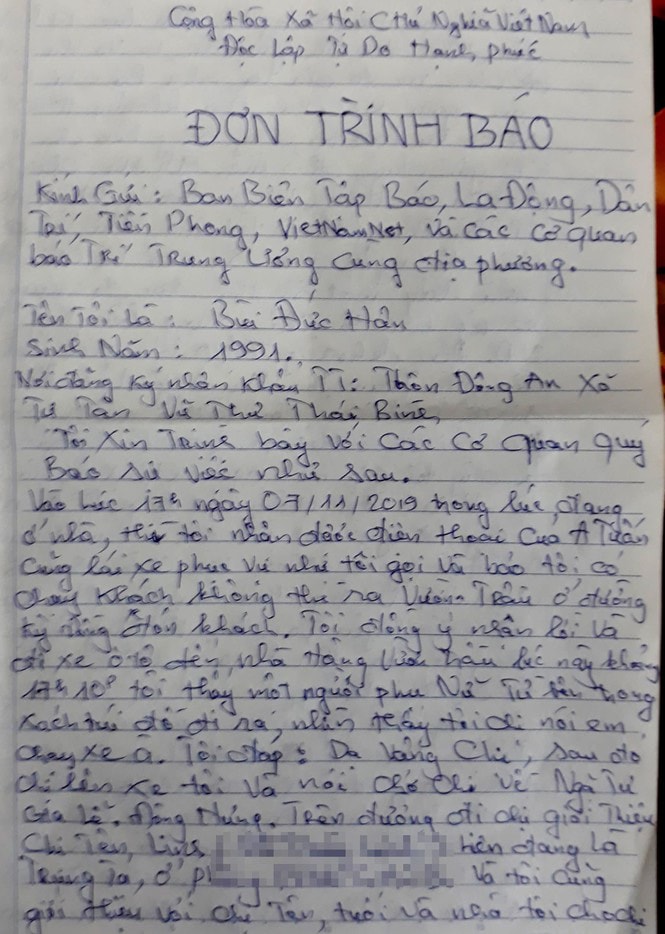 Cộng Hòa Xã Hội Chủ Nghĩa Việt Nam
Độc Lập Tự Do Hạnh phúc
ĐƠN TRÌNH BÁO
Kính Gửi: Ban Biên Tập Báo, Lao Động, Dân
Trí, Tiền Phong, VietNamNet, và các cơ quan
báo Trí Trung Ương Cung địa phương.
Tên Tôi Là: Bùi Đức Hân
Sinh Năm: 1991.
Nơi đăng ký nhân khẩu TT: Thôn Đông An Xã
Tự Tân Vũ Thư Thái Bình,
Tôi Xin Trình bày với các Cơ quan quý
Báo sự việc như sau.
Vào lúc 17h ngày 07/11/2019 trong lúc đang
ở nhà, thì tôi nhận được điện thoại của A Tuấn
Cũng lái xe phục vụ như tôi gọi và bảo tôi có
chạy khách không thì ra Vườn Trầu ở đường
Kỳ đồng đón khách. Tôi đồng ý nhận lời và
đi xe ô tô đến nhà hàng Vườn trầu lúc này khoảng
17h 10p tôi thấy một người phụ Nữ Từ bên trong
xách túi đồ đi ra, nhìn thấy tôi chị nói em
chạy xe à. Tôi đáp: Dạ vâng Chị, sau đó
chị lên xe tôi và nói chở chị về Ngã Tư
Gia Lễ. Đông Hưng. Trên đường đi chị giới Thiệu
Chị Tên, hiện đang là
Trung Tá, ở và tôi cũng
giới thiệu với chị Tên, tuổi và nhà tôi cho chị